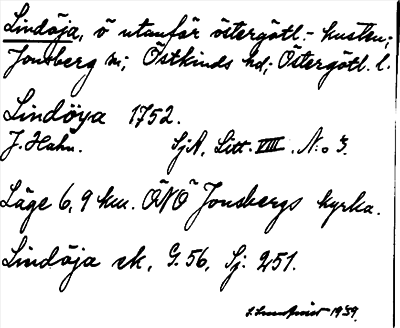 Lindöja, ö utanför östergötl.-kusten;
Jonsberg sn; Östkinds hd; Östergötl. l.
Lindöya 1752.
J. Hahn. SjA, Litt. VIII. N:o 3.
Läge 6,9 km. ÖNÖ Jonsbergs kyrka.
Lindöja ek, G. 56, Sj. 251.
1939.